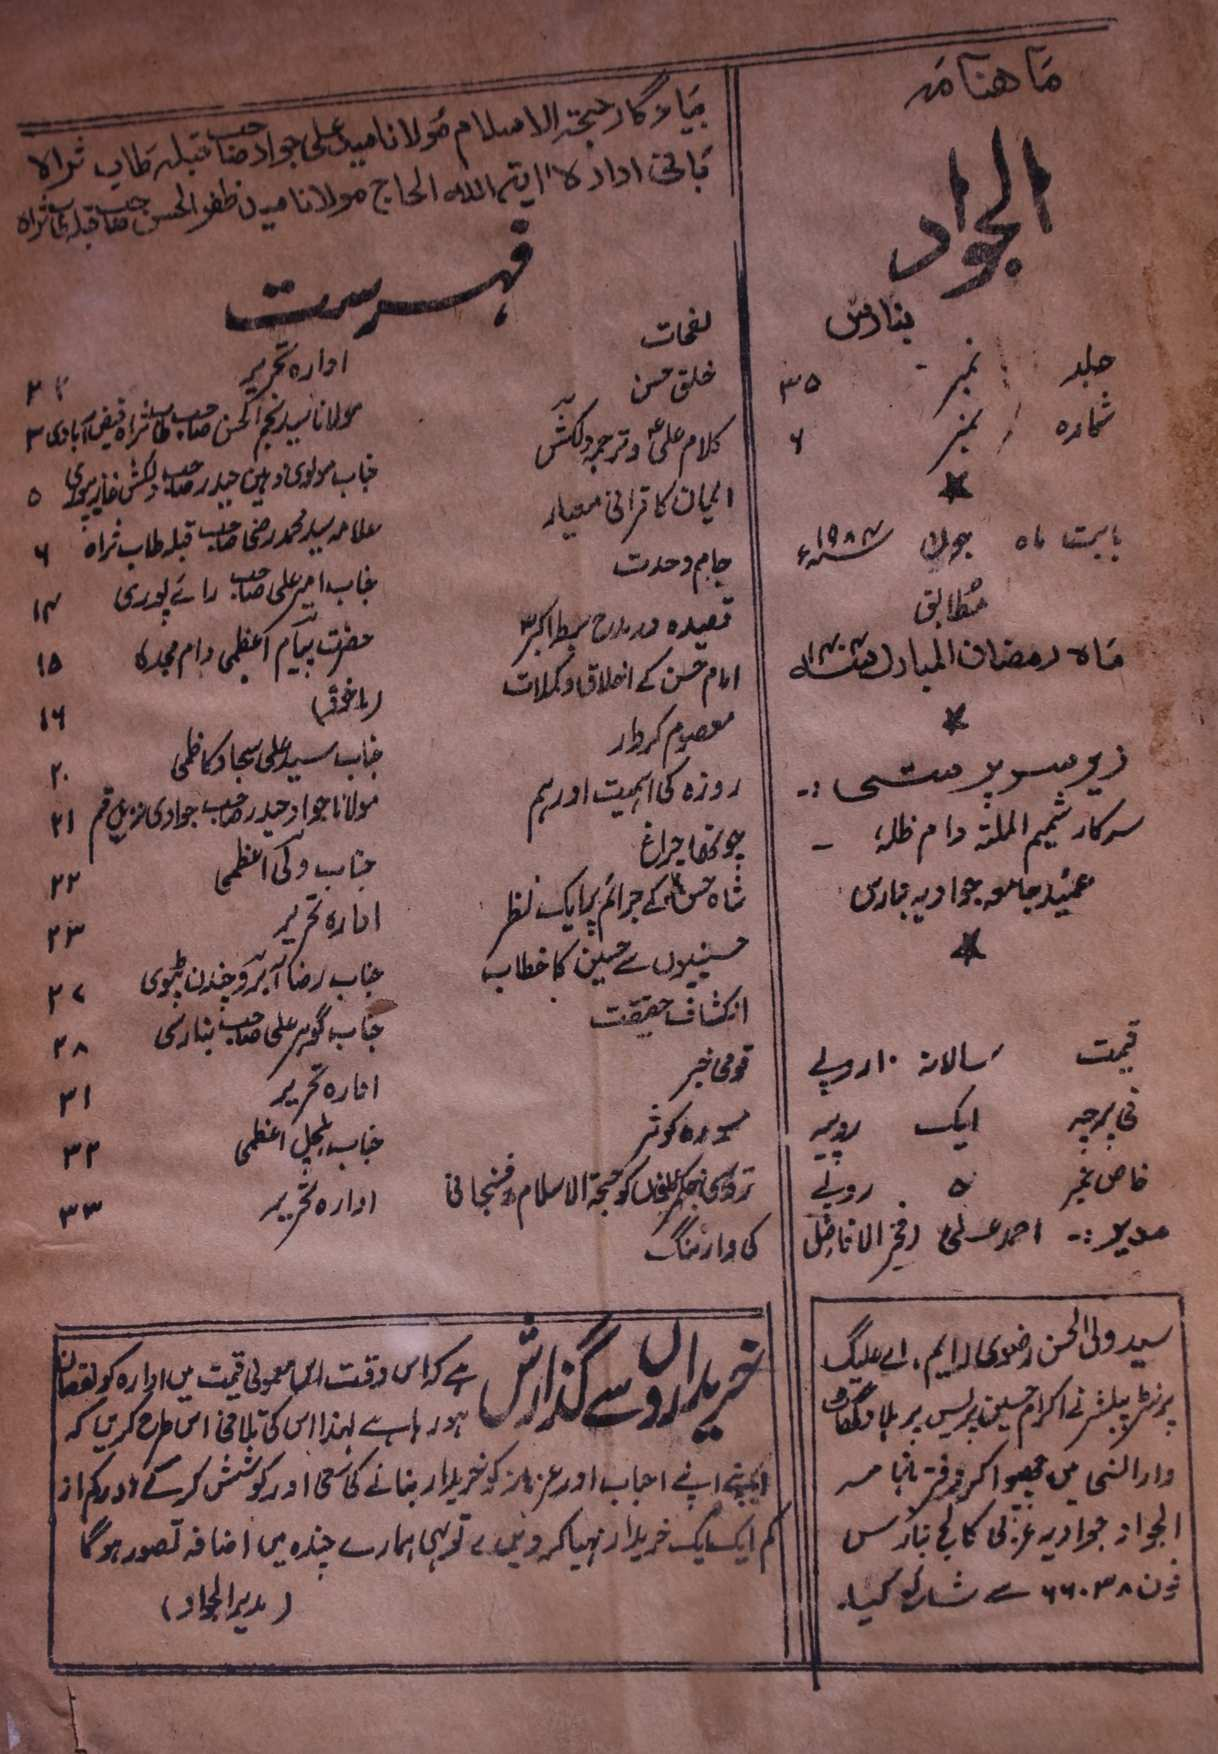 ماهنامہ
الجواد
بنارس
جلد نمبر ۳۵
شمارہ نمبر ۶
بابت ماہ جون ۱۹۸۴ء
مطابق
ماہ رمضان المبارک ۱۴۰۴ھ
زیر سرپرستی :-
سرکار شمیم الملتہ دام ظلہٗ -
عمید جامعہ جوادیہ بنارس
قیمت سالانہ ۱۰ روپے
فی پرچہ ایک روپیہ
خاص نمبر ۵ روپے
مدیر :- احمد علی (فخر الافاضل
سید ولی الحسن رضوی (ایم، اے علیگ
پرنٹر پبلشر نے اکرام حسین پریس پر
وارانسی میں چھپوا کر دفتر ماہنامہ
الجواد جوادیہ عربی کالج بنارس
فون ۶۶۰۳۸ سے شائع کیا۔
بیادگار حجتہ الاسلام مولانا سید علی جواد صاحب قبلہ طاب ثراہ
بانی ادارہ آیتہ اللہ الحاج مولانا سید ظفر الحسن صاحب قبلہ طاب ثراہ
فہرست
لمحات ادارہ تحریر ۲
خلق حسن مولانا سید نجم الحسن صاحب طاب ثراہ فیض آبادی ۳
کلام علیؑ و ترجمہ دلکش جناب مولوی ذہین حیدر صاحب دلکش غازیپوری ۵
ایمان کا قرآنی معیار علامہ سید محمد رضی صاحب قبلہ طاب ثراہ ۶
جام وحدت جناب امیر علی صاحب رائے پوری ۱۴
قصیدہ در مدح سبط اکبرؑ حضرت پیام اعظمی دام مجدہ ۱۵
امام حسن کے اخلاق و کمالات (ماخوذ) ۱۶
معصوم کردار جناب سید علی سجاد کاظمی ۲۰
روزہ کی اہمیت اور ہم مولانا جواد حیدر صاحب جوادی نزیل قم ۲۱
چوتھا چراغ جناب ذکی اعظمی ۲۲
شاہ حسن کے جرائم پر ایک نظر ادارہ تحریر ۲۳
حسینیوں سے حسین کا خطاب جناب رضا آبرو چندن پٹوی ۲۷
انکشاف حقیقت جناب گوہر علی صاحب بنارسی ۲۸
قومی خبر ادارہ تحریر ۳۱
سورہ کوثر جناب ہلچل اعظمی ۳۲
کو حجتہ الاسلام رفسنجانی ادارہ تحریر ۳۳
کی وارننگ
خریداروں سے گذارش ہے کہ اس وقت اس معمولی قیمت میں ادارہ کو نقصان
ہو رہا ہے لہذا اس کی تلافی اس طرح کریں کہ
اپنے اپنے احباب اور عزیز کو خریدار بنانے کی سعی اور کوشش کرکے اور کم از
کم ایک ایک خریدار مہیا کر دیں، تو یہی ہمارے چندہ میں اضافہ تصور ہوگا
(مدیر الجواد)